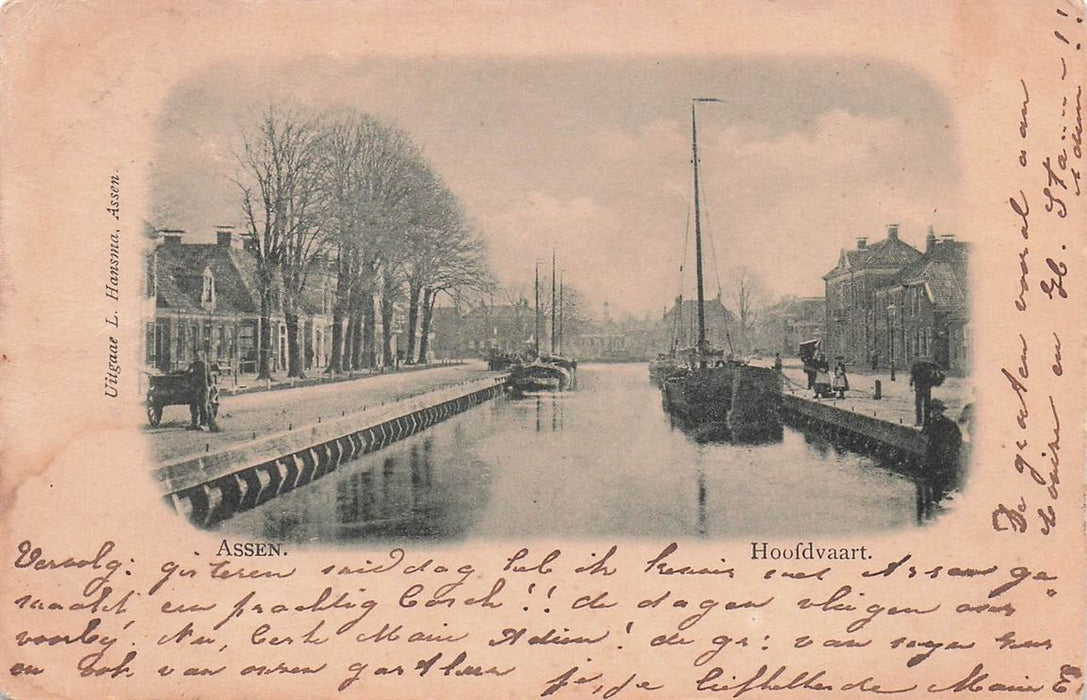 Uitgaae L. Hansma, Assen.
ASSEN.
Hoofdvaart.
Vervolg: gisteren middag heb ik kennis met Assen ge
maakt een prachtig bosch!! de dagen vliegen over
voorby. Nu, beste Main Adieu! de gr: van
en ook van onzen gastheer je, je liefhebbende Main
De groeten vooral aan
Louise en H.
Adieu!!